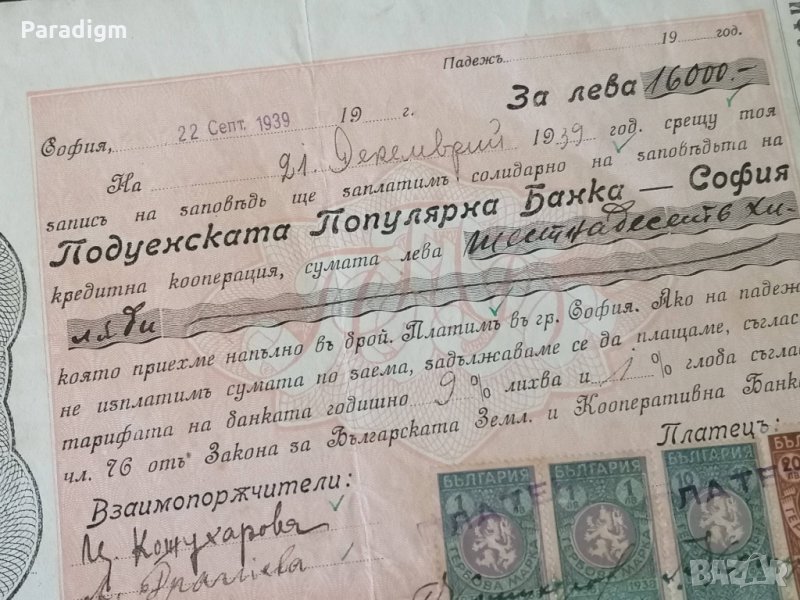 Paradigm
Падежъ 19 год.
За лева 16000.-
София, 22 Септ. 1939 19 г.
На 21 Декемврий 1939 год. срещу тоя
запись на заповѣдь ще заплатимъ солидарно на заповѣдьта на
Подуенската Популярна Банка – София
кредитна кооперация, сумата лева шестнадесеть хи-
ляди
която приехме напълно въ брой. Платимъ въ гр. София. Ако на падежа
не изплатимъ сумата по заема, задължаваме се да плащаме, съглас
тарифата на банката годишно 9% лихва и 1% глоба съглас
чл. 76 отъ Закона за Българската Земл. и Кооперативна Банка
Платецъ:
Взаимопорѫчители:
Кожухаровъ
БЪЛГАРИЯ БЪЛГАРИЯ БЪЛГАРИЯ
1 1 10 20
ЛВ ЛВ
ГЕРБОВА МАРКА ГЕРБОВА МАРКА
1938
БАZАР